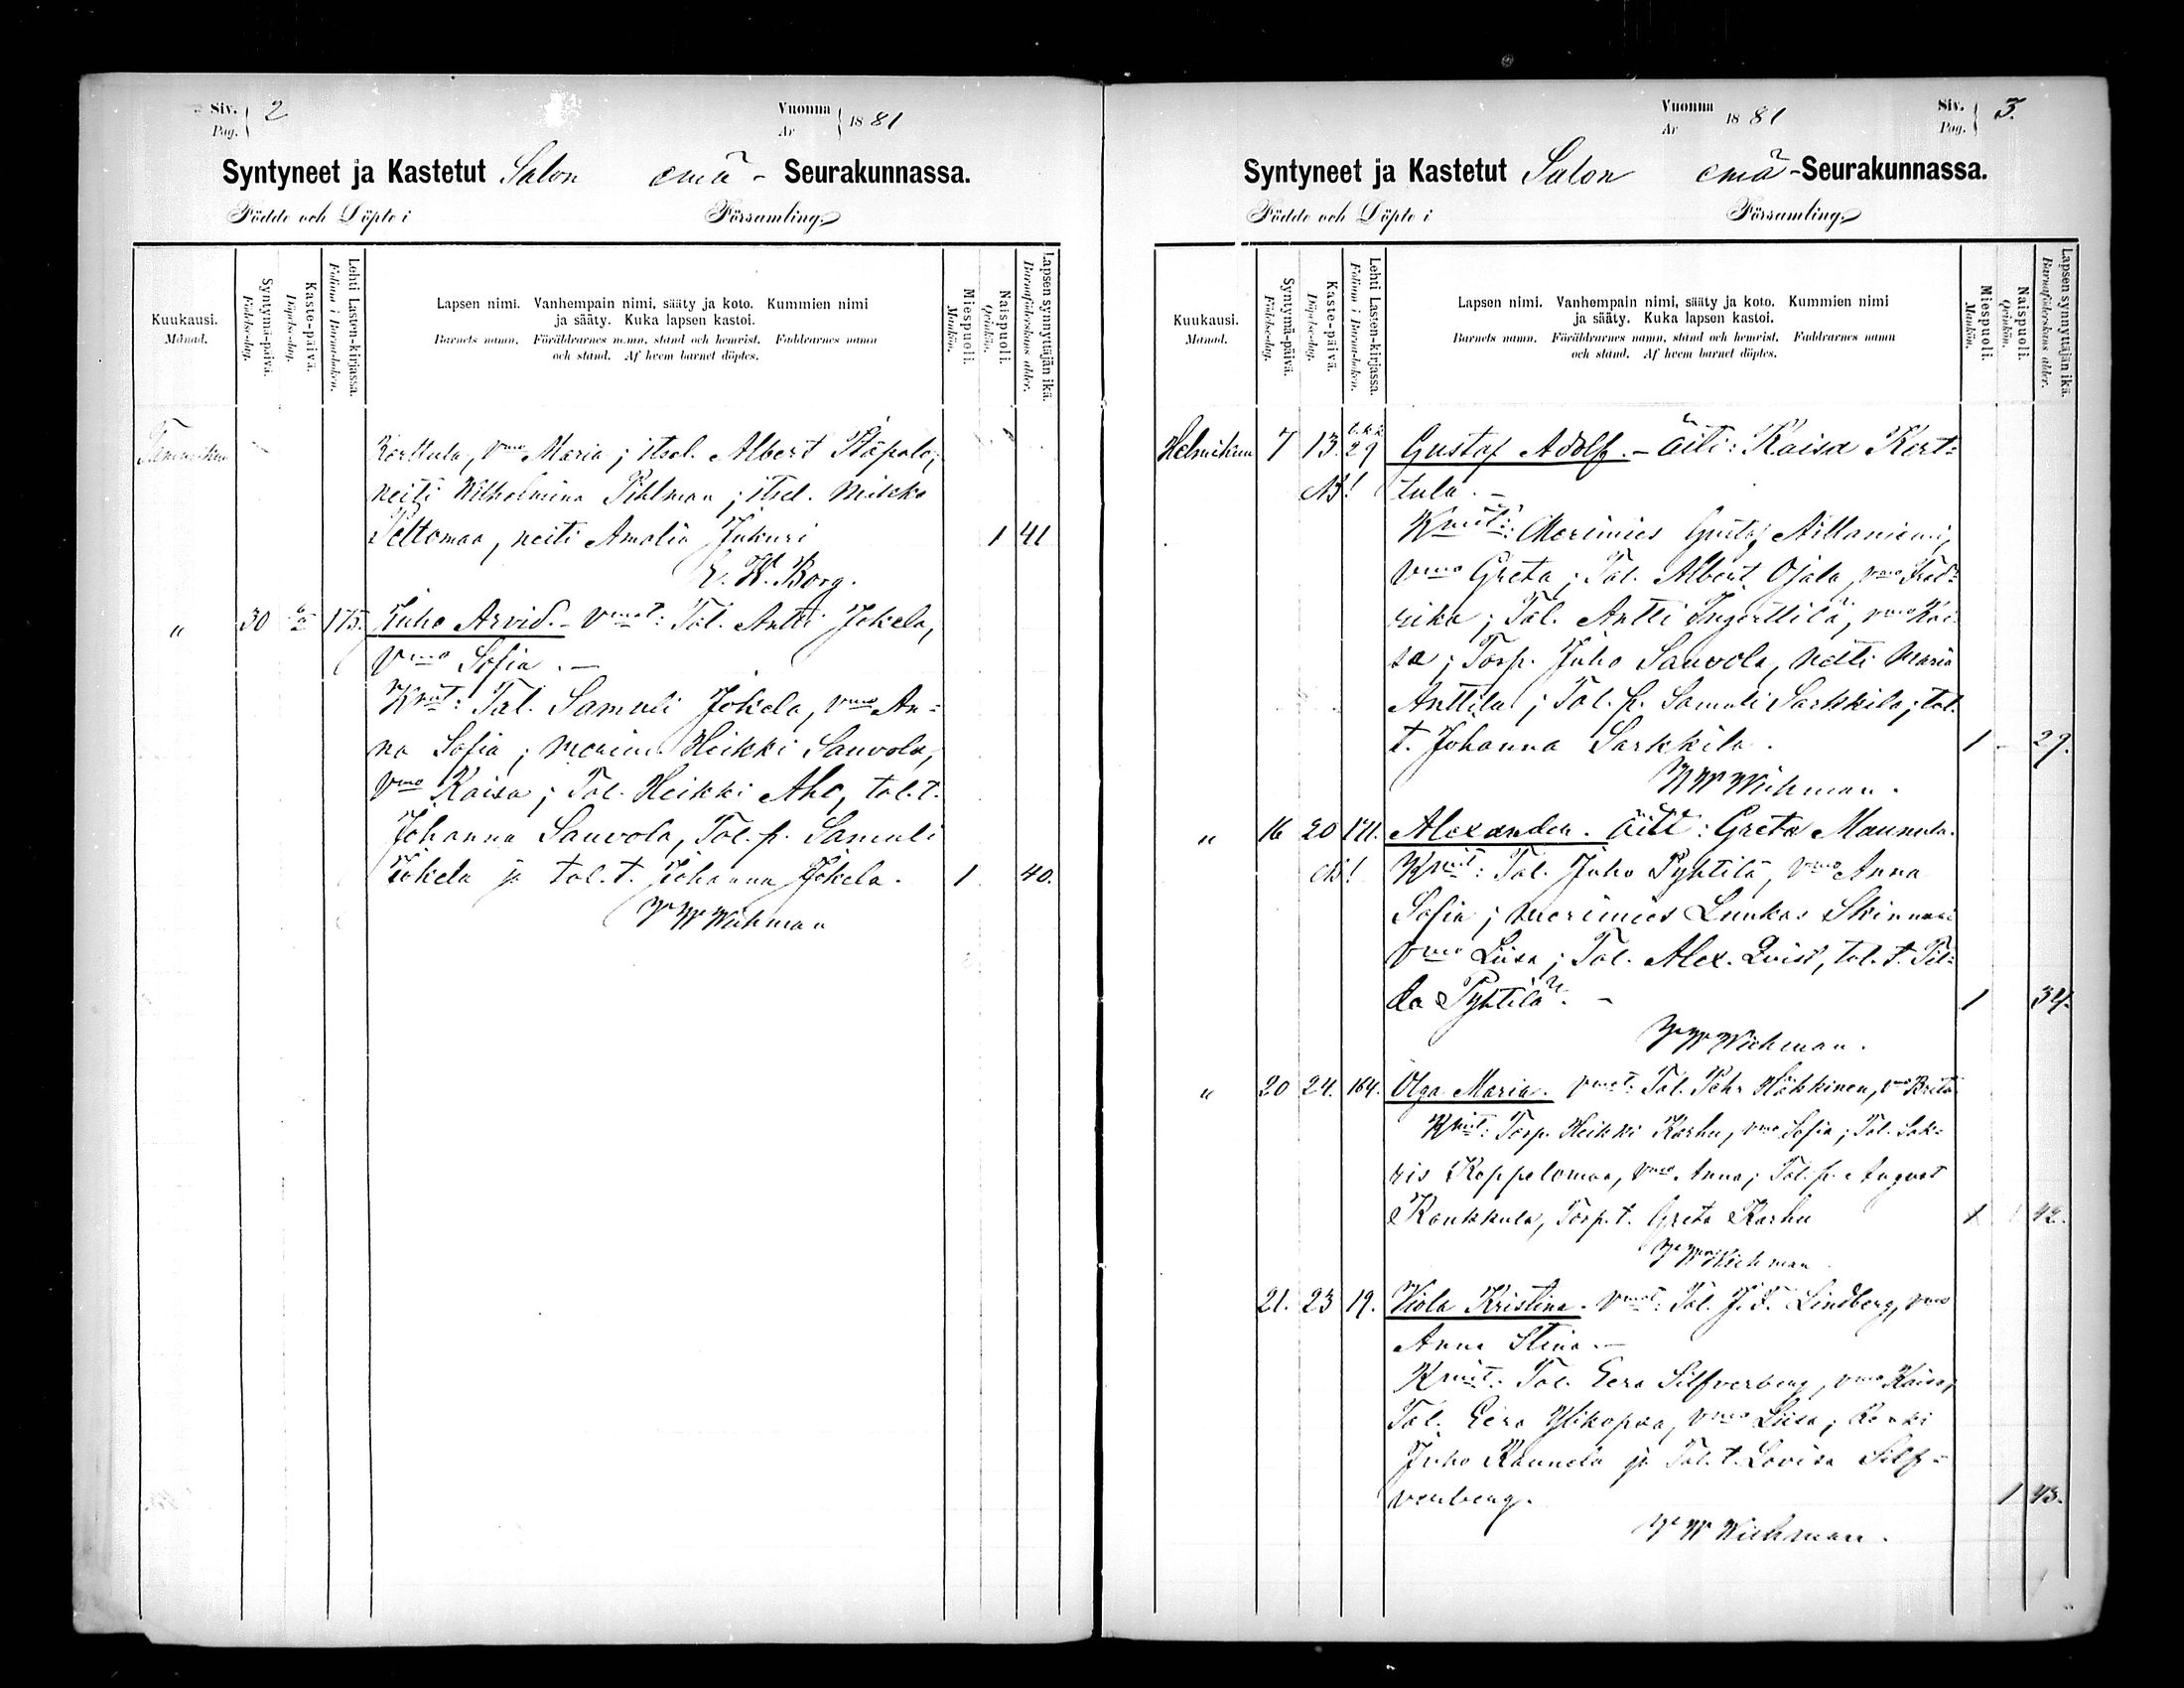 Siv. 2
Pag.
Vuonna 1881
Ar
Syntyneet ja Kastetut Salon emä - Seurakunnassa.
Födde och Döpte i Församling.
Kuukausi.
Månad.
Syntymä-päivä.
Födelse-dag.
Kaste-päivä.
Döpelse-dag.
Lehti Lasten-kirjassa.
Folium i Barna-boken.
Lapsen nimi. Vanhempain nimi, sääty ja koto. Kummien nimi
ja sääty. Kuka lapsen kastoi.
Barnets namn. Föräldrarnes namn, stånd och hemvist. Faddrarnes namn
och stånd. Af hvem barnet döptes.
Miespuoli.
Mankön.
Naispuoli.
Qvinkön.
Lapsen synnyttäjän ikä.
Barnaföderskans ålder.
Tammikuu Korttula, vmo Maria; itsel. Albert
neiti Wilhelmina Pihlman; itsel. Mikko
Peltomaa, neiti Amalia Jukuri 1 41
E. W. Borg.
" 30 175. Juho Arvid. - Vmat: Tal. Antti Jokela,
Vmo Sofia. -
Kmit: Tal. Samuli Jokela, vmo An=
na Sofia; merim. Heikki Sauvola,
Vmo Kaisa; Tal. Heikki Aho, tal. t.
Johanna Sauvola, Tal. p. Samuli
Jokela ja tal. t. Johanna Jokela. 1 40.
Wichman
Vuonna 1881
Ar
Siv. 3.
Pag.
Syntyneet ja Kastetut Salon emä - Seurakunnassa.
Födde och Döpte i Församling.
Kuukausi.
Månad.
Syntymä-päivä.
Födelse-dag.
Kaste-päivä.
Döpelse-dag.
Lehti Lasten-kirjassa.
Folium i Barna-boken.
Lapsen nimi. Vanhempain nimi, sääty ja koto. Kummien nimi
ja sääty. Kuka lapsen kastoi.
Barnets namn. Föräldrarnes namn, stånd och hemvist. Faddrarnes namn
och stånd. Af hvem barnet döptes.
Miespuoli.
Mankön.
Naispuoli.
Qvinkön.
Lapsen synnyttäjän ikä.
Barnaföderskans ålder.
Helmikuu 7 13. 29 Gustaf Adolf. - äiti: Kaisa Kort=
tula. -
Kmit: Merimies Gustaf
vmo Greta; Tal. Albert Ojala, vmo Fred=
rika; Tal. Antti Ingerttilä, vmo Kai
sa; Torp. Juho Sauvola, neiti Maria
Anttila; Tal. p. Samuli Sarkkila; tal.
t. Johanna Sarkkila. 1 - 29.
Wichman.
" 16 20 171. Alexander. äiti: Greta Maunula.
Kmit: Tal. Juho Pyhtilä, vmo Anna
Sofia; merimies Luukas Skinnari
vmo Liisa; Tal. Alex. Qvist, tal. t. Til=
da Pyhtilä. - 1 34.
Wichman.
" 20 24. 164. Olga Maria. Vmat: Tal. Pehr Häkkinen, vmo Brita
Kmit: Torp. Heikki Karhu, vmo Sofia; Tal. Sak=
ris Koppelomaa, vmo Anna; Tal. p. August
Kaukkula, Torp. t. Greta Karhu 1 42.
Wichman
21. 23 19. Viola Kristina. Vmat: Tal. J. F. Lindberg, vmo
Anna Stina. -
Kmit: Tal. Eera Silfverberg, vmo Kaisa,
Tal. Eera Ylikopsa, vmo Liisa; Renki
Juho Raunela ja Tal. t. Lovisa Silf=
verberg. 1 43.
Wichman.